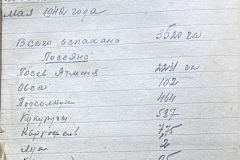 мая 1942 года
Всего вспахано 3520 га
Посеяно
Посев Ячменя 2231 га
Овса 102
Подсолнух 464
Кукурузы 587
Картофель 775
Лук 2
95